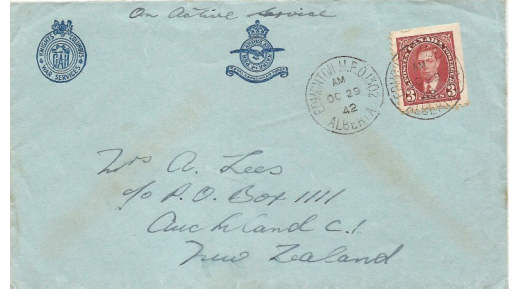 On Active Service
KNIGHTS OF COLUMBUS
WAR SERVICES
EDMONTON M.P.O. 1302
AM
OC 29
42
ALBERTA
CANADA
3 CENTS 3
Mrs A. Lees
c/o P.O. Box 1111
Auckland C.1
New Zealand